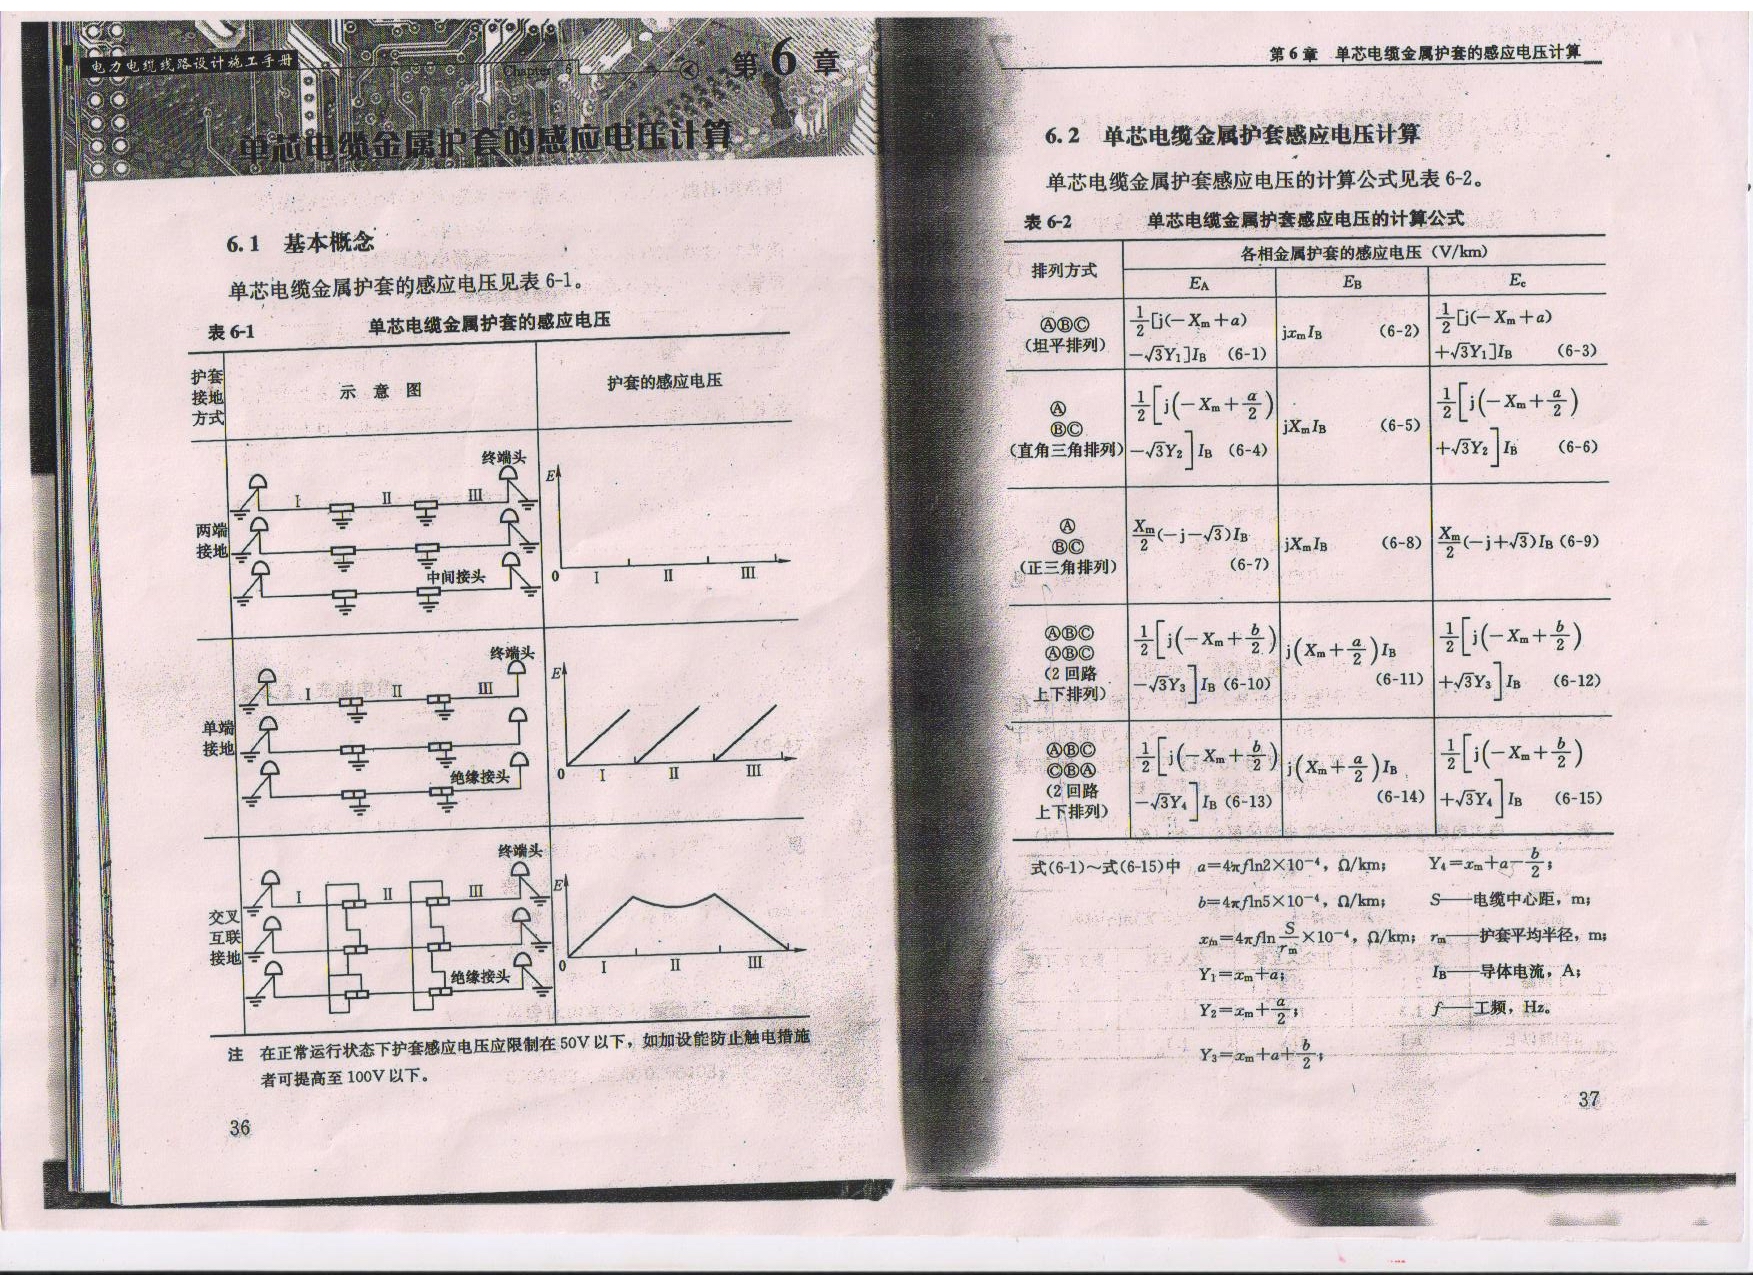 电力电缆线路设计施工手册
Chapter 6
第6章
单芯电缆金属护套的感应电压计算
6.1 基本概念
单芯电缆金属护套的感应电压见表 6-1。
表 6-1 单芯电缆金属护套的感应电压
护套接地方式 示意图 护套的感应电压
两端接地 终端头 I II III 中间接头 E 0 I II III
单端接地 终端头 I II III 绝缘接头 E 0 I II III
交叉互联接地 终端头 I II III 绝缘接头 E 0 I II III
注 在正常运行状态下护套感应电压应限制在 50V 以下，如加设能防止触电措施
者可提高至 100V 以下。
36
第 6 章 单芯电缆金属护套的感应电压计算
6.2 单芯电缆金属护套感应电压计算
单芯电缆金属护套感应电压的计算公式见表 6-2。
表 6-2 单芯电缆金属护套感应电压的计算公式
排列方式 各相金属护套的感应电压（V/km）
E_A E_B E_c
ⒶⒷⒸ（坦平排列） 1/2[j(-X_m+a)-√3Y_1]I_B (6-1) jx_mI_B (6-2) 1/2[j(-X_m+a)+√3Y_1]I_B (6-3)
Ⓐ ⒷⒸ（直角三角排列） 1/2[j(-X_m+a/2)-√3Y_2]I_B (6-4) jX_mI_B (6-5) 1/2[j(-X_m+a/2)+√3Y_2]I_B (6-6)
Ⓐ ⒷⒸ（正三角排列） X_m/2(-j-√3)I_B (6-7) jX_mI_B (6-8) X_m/2(-j+√3)I_B (6-9)
ⒶⒷⒸ ⒶⒷⒸ（2 回路上下排列） 1/2[j(-X_m+b/2)-√3Y_3]I_B (6-10) j(X_m+a/2)I_B (6-11) 1/2[j(-X_m+b/2)+√3Y_3]I_B (6-12)
ⒶⒷⒸ ⒸⒷⒶ（2 回路上下排列） 1/2[j(-X_m+b/2)-√3Y_4]I_B (6-13) j(X_m+a/2)I_B (6-14) 1/2[j(-X_m+b/2)+√3Y_4]I_B (6-15)
式(6-1)～式(6-15)中 a=4πfln2×10⁻⁴，Ω/km； Y_4=x_m+a-b/2；
b=4πfln5×10⁻⁴，Ω/km； S——电缆中心距，m；
x_m=4πfln S/r_m ×10⁻⁴，Ω/km； r_m——护套平均半径，m；
Y_1=x_m+a； I_B——导体电流，A；
Y_2=x_m+a/2； f——工频，Hz。
Y_3=x_m+a+b/2；
37